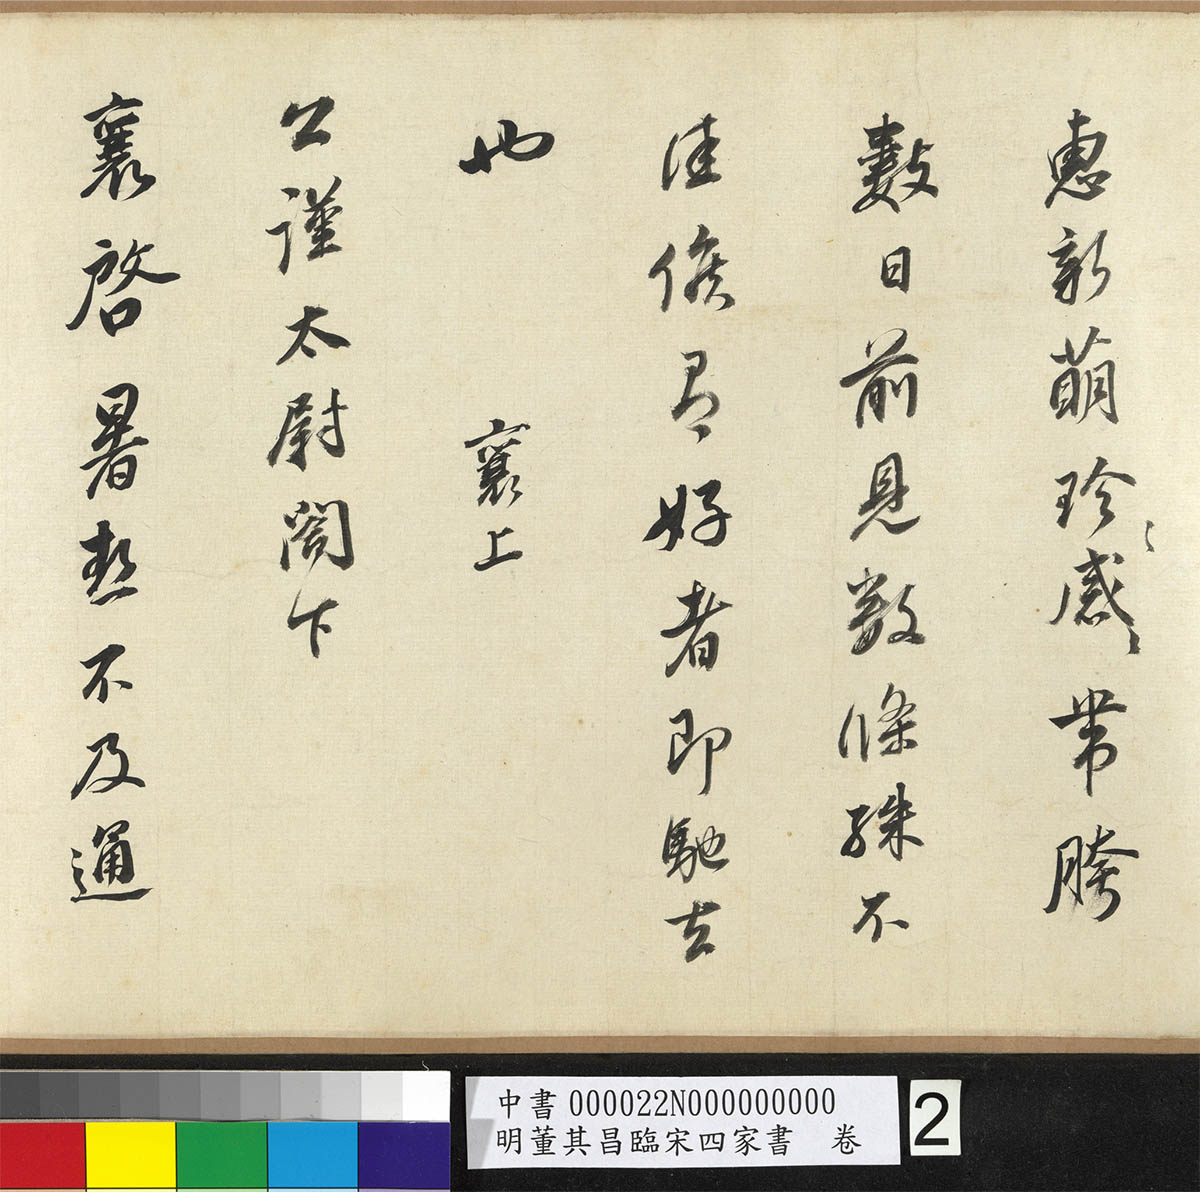 惠新萌珍感〻帶胯
數日前見數條殊不
佳候有好者即馳去
也 襄上
公謹太尉閤下
襄啓暑熱不及通
中書 000022N000000000
明董其昌臨宋四家書 卷
2